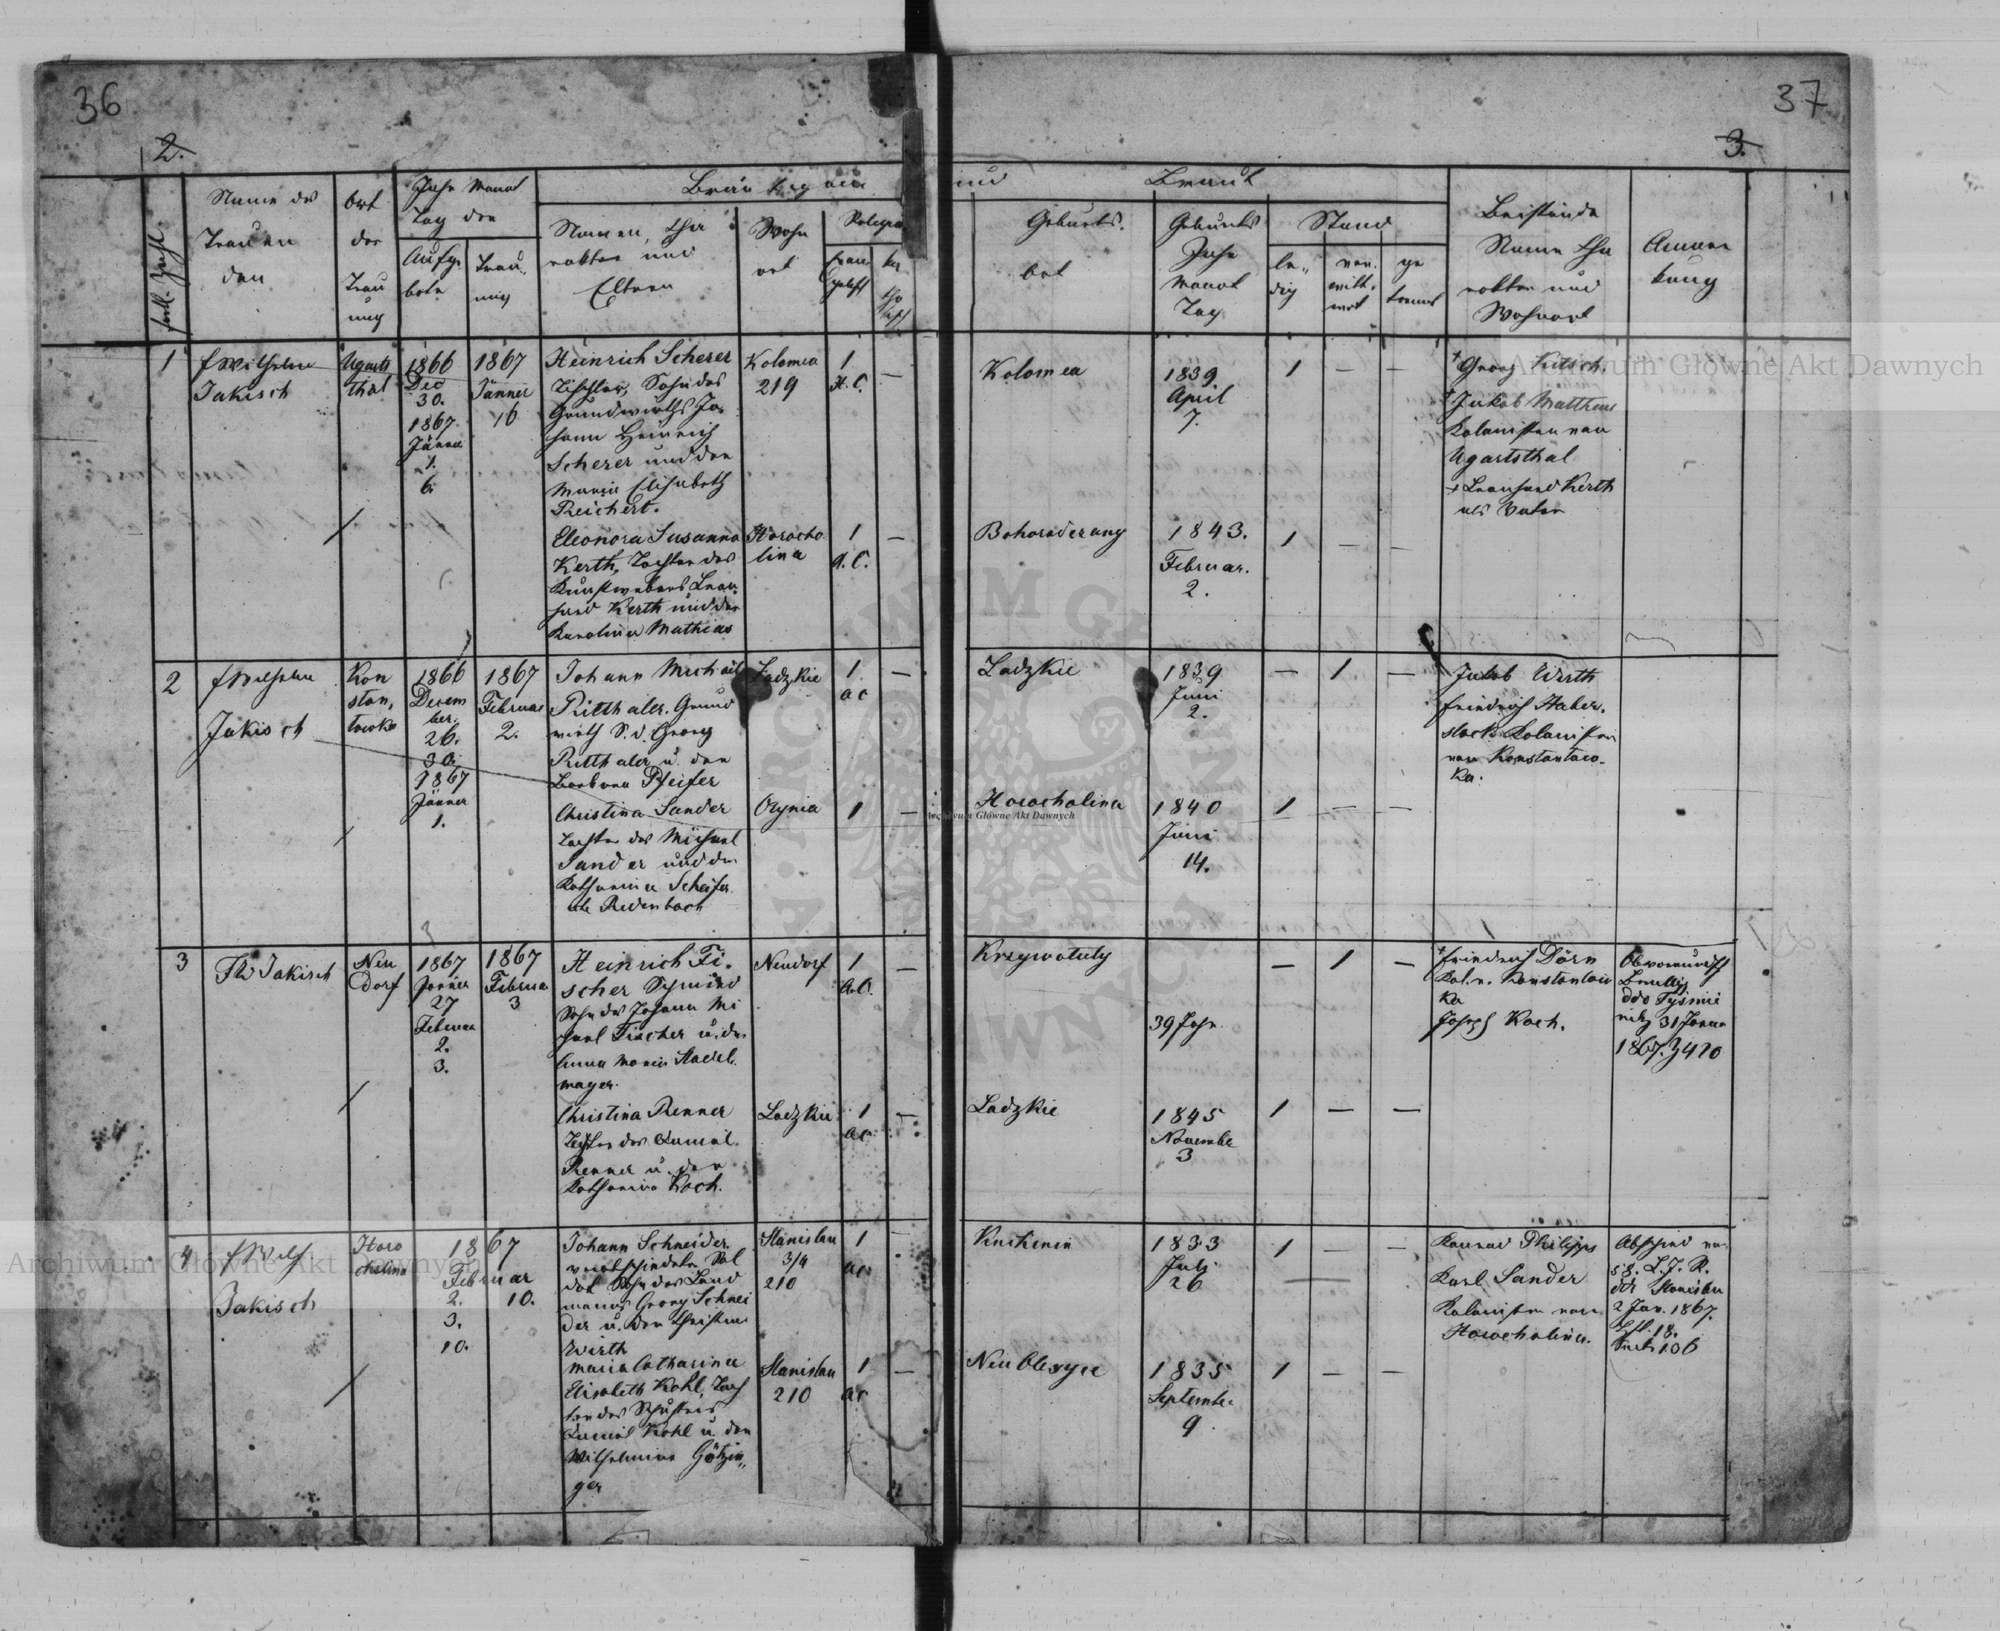 36
37
2.
3.
Name des
Trauen
den
Ort
der
Trau
ung
Jahr Monat
Tag der
Aufge
bote
Trau
ung
Bräutigam
und
Braut
Namen, Cha
rakter und
Eltern
Wohn
ort
Geburts
ort
Geburts
Jahr
Monat
Tag
Stand
le
dig
ver
witt
wet
ge
trennt
Beistände
Name Cha
rakter und
Wohnort
Anmer
kung
1
Wilhelm
Jakisch
Ugarts
thal
1866
Dec
30.
1867
Jänner
1.
6.
1867
Jänner
16
Heinrich Scherer
Tischler, Sohn des
Grundwirths Jo
hann Heinrich
Scherer und der
Maria Elisabeth
Reichert.
Kolomea
219
1
H. C.
—
Kolomea
1839
April
7.
1
—
—
Georg Kitsch
Jakob Mattheus
Kolonisten von
Ugartsthal
Leonhard Kerth
als Vater
Eleonora Susanna
Kerth, Tochter des
Kunstwebers Leon
hard Kerth und der
Karolina Mathias
Horocho
lina
1
A. C.
—
Bohorodczany
1843.
Februar.
2.
1
—
—
2
Wilhelm
Jakisch
Kon
stan
towka
1866
Decem
ber.
26.
30.
1867
Jänner
1.
1867
Februar
2.
Johann Michael
Ritthaler. Grund
wirth S. d. Georg
Ritthaler u. der
Barbara Pfeifer
Ladzkie
1
ac
—
Ladzkie
1839
Juni
2.
—
1
—
Jakob Wirth
Friedrich Haber
stock Kolonisten
von Konstantow
ka.
Christina Sander
Tochter des Michael
Sander und der
Katharina Schäfer
Redenbach
Otynia
1
—
Horocholina
1840
Juni
14.
1
—
—
3
W Jakisch
Neu
dorf
1867
Jänner
27
Februar
2.
3.
1867
Februar
3
Heinrich Fi
scher Schmied
Sohn des Johann Mi
chael Fischer u. der
Anna Maria
mayer.
Neudorf
1
A. C.
—
Krzywotuly
39 Jahr
—
1
—
Friedrich Dörn
Kol. v. Konstantow
ka
Joseph Koch.
ddo Tysmie
nitz 31 Jänner
1867. Z 410
Christina Renner
Tochter des Daniel
Renner u. der
Katharina Koch.
Ladzkie
1
ac
—
Ladzkie
1845
November
3
1
—
—
4
Wilh
Jakisch
Horo
cholina
1867
Februar
2.
3.
10.
10.
Johann Schneider
verabschiedeter Sol
dat Sohn des Land
manns Georg Schnei
der u. der Christina
Wirth
Stanislau
3/4
210
1
ac
—
1833
Juli
26
1
—
—
Konrad Philipps
Karl Sander
Kolonisten von
Horocholina.
Abschied
Stanislau
2 Jan. 1867.
Maria Catharina
Elisabeth Kohl, Toch
ter des Schusters
Daniel Kohl u. der
Wilhelmina Götzin
ger
Stanislau
210
1
ac
—
1835
September
9
1
—
—
Archiwum Główne Akt Dawnych
Archiwum Główne Akt Dawnych
Archiwum Główne Akt Dawnych